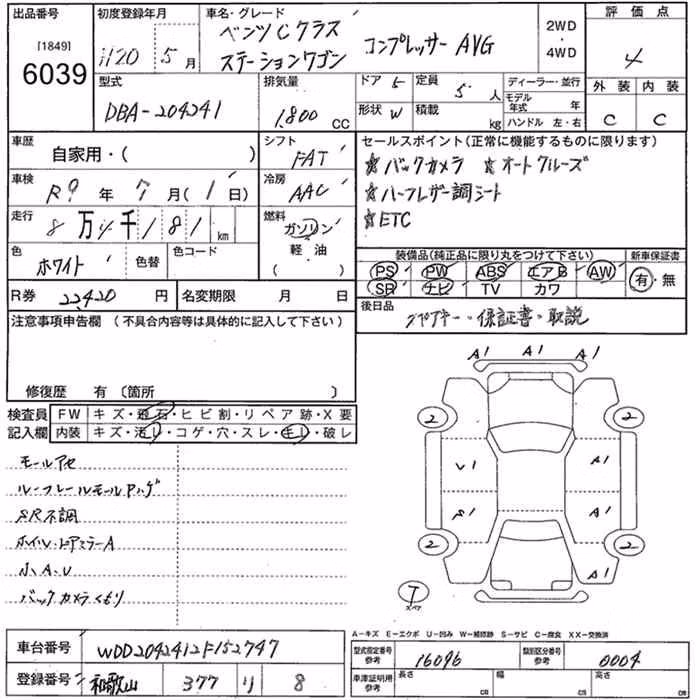 出品番号
[1849]
6039
初度登録年月
H20 年 5 月
車名・グレード
ベンツCクラス
ステーションワゴン コンプレッサー AVG
2WD
4WD
評価点
4
外装 内装
C C
型式
DBA-204241
排気量
1,800 CC
ドア 5
定員 5 人
形状 W
積載 kg
ディーラー・並行
モデル年式 年
ハンドル 左・右
車歴
自家用・( )
シフト
FAT
車検
R9 年 7 月 ( 1 日)
冷房
AAC
走行
8 万 千 181 km
燃料
ガソリン
軽油
色
ホワイト
色替
色コード
R券 22420 円
名変期限 月 日
セールスポイント(正常に機能するものに限ります)
☆バックカメラ ☆オートクルーズ
☆ハーフレザー調シート
☆ETC
装備品(純正品に限り丸をつけて下さい)
PS PW ABS エアB AW
SR ナビ TV カワ
新車保証書
有・無
後日品
スペアキー・保証書・取説
注意事項申告欄 (不具合内容等は具体的に記入して下さい)
修復歴 有 〔箇所 〕
検査員
記入欄
FW キズ・飛石・ヒビ割・リペア跡・X要
内装 キズ・汚レ・コゲ・穴・スレ・キレ・破レ
モールアセ
ルーフレールモールハゲ
SR不調
ホイル・ドアミラーA
小A・U
バックカメラくもり
A1 A1 A1
2 2
U1 A1
S1 A1
2 2
A1
T
スペア
A-キズ E-エクボ U-凹み W-補修跡 S-サビ C-腐食 XX-交換済
車台番号
WDD2042412F152747
登録番号
和歌山 377 り 8
型式指定番号
参考
16096
類別区分番号
参考
0004
車庫証明用
参考
長さ cm
幅 cm
高さ cm